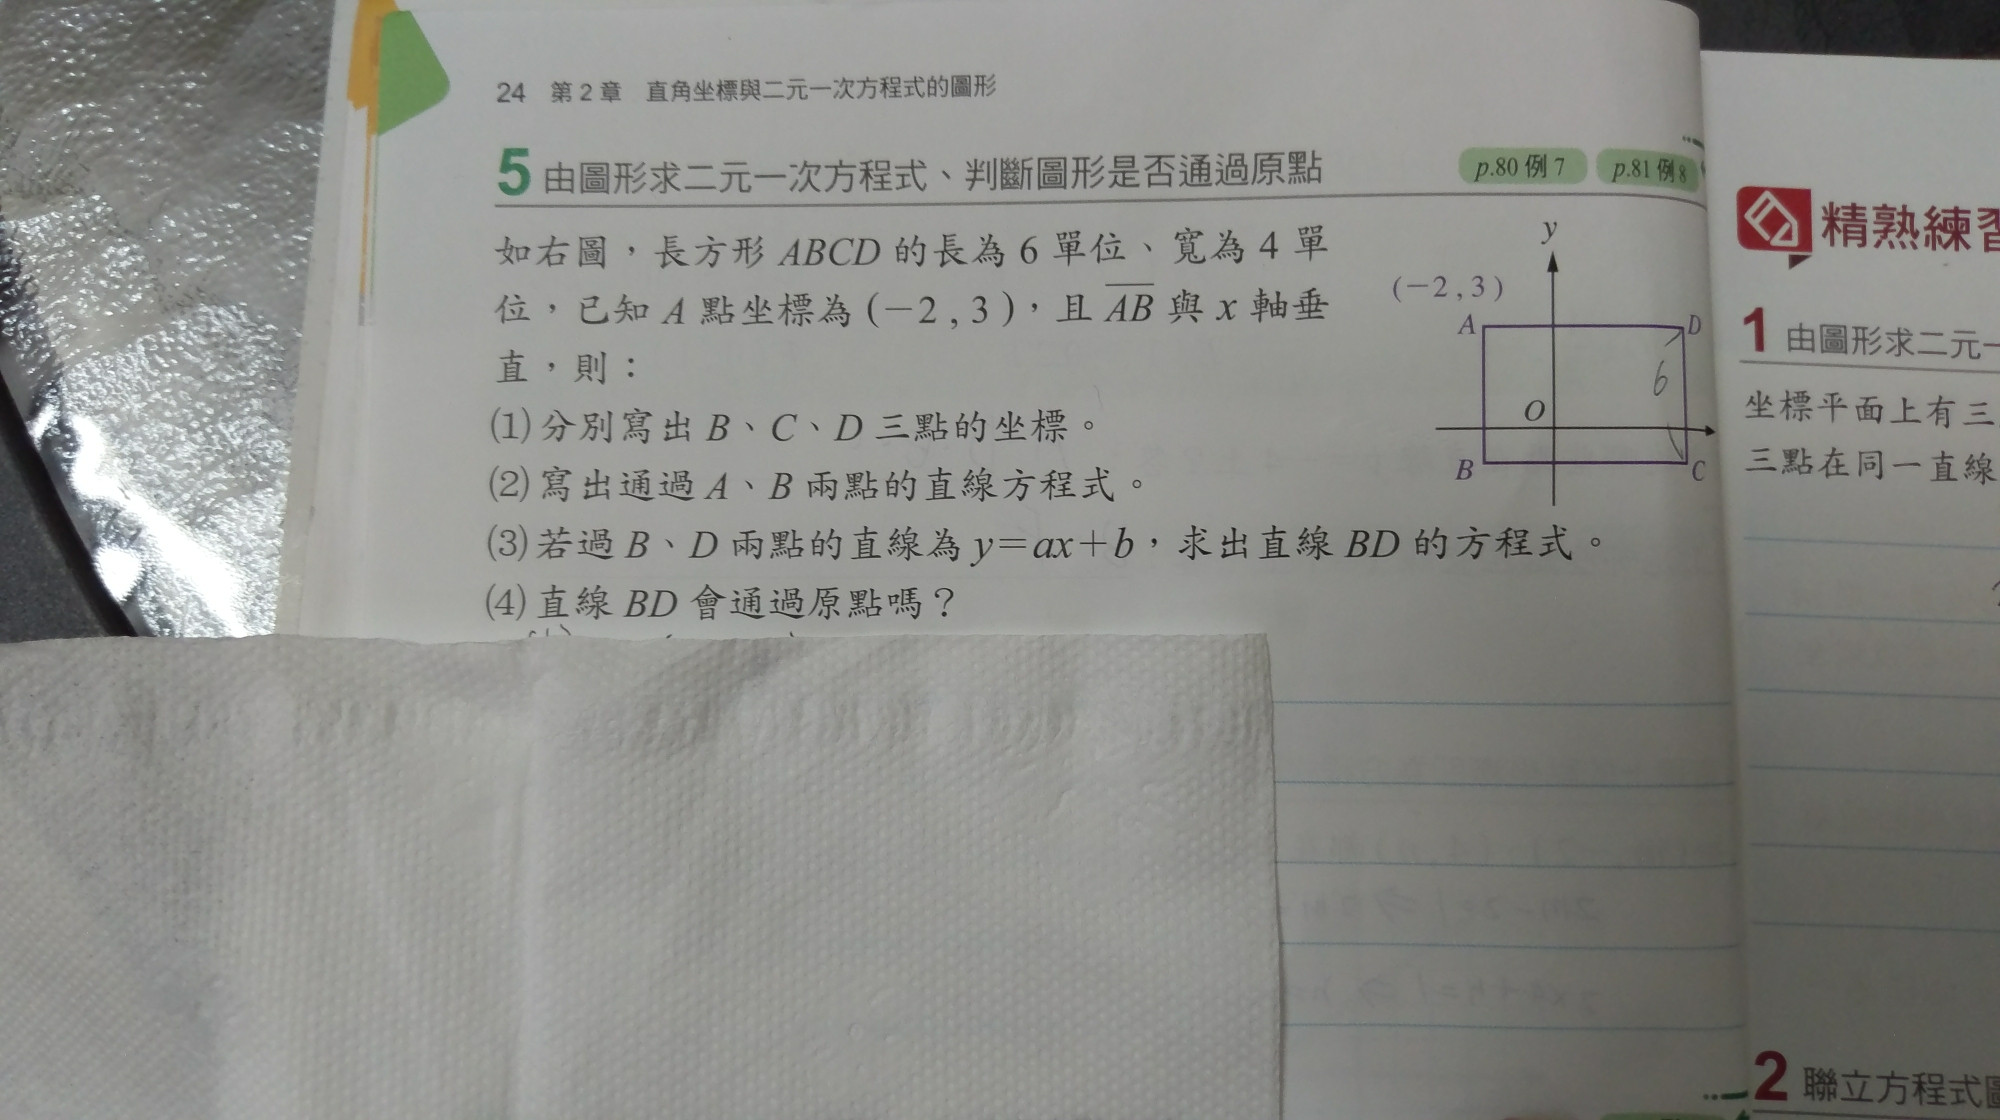 24 第2章 直角坐標與二元一次方程式的圖形
5 由圖形求二元一次方程式、判斷圖形是否通過原點
p.80 例 7
p.81 例 8
如右圖，長方形 ABCD 的長為 6 單位、寬為 4 單
位，已知 A 點坐標為 (－2 , 3)，且 AB 與 x 軸垂
直，則：
(1) 分別寫出 B、C、D 三點的坐標。
(2) 寫出通過 A、B 兩點的直線方程式。
(3) 若過 B、D 兩點的直線為 y＝ax＋b，求出直線 BD 的方程式。
(4) 直線 BD 會通過原點嗎？
y
(－2 , 3)
A
D
6
O
B
C
精熟練習
1 由圖形求二元一
坐標平面上有三
三點在同一直線
2 聯立方程式